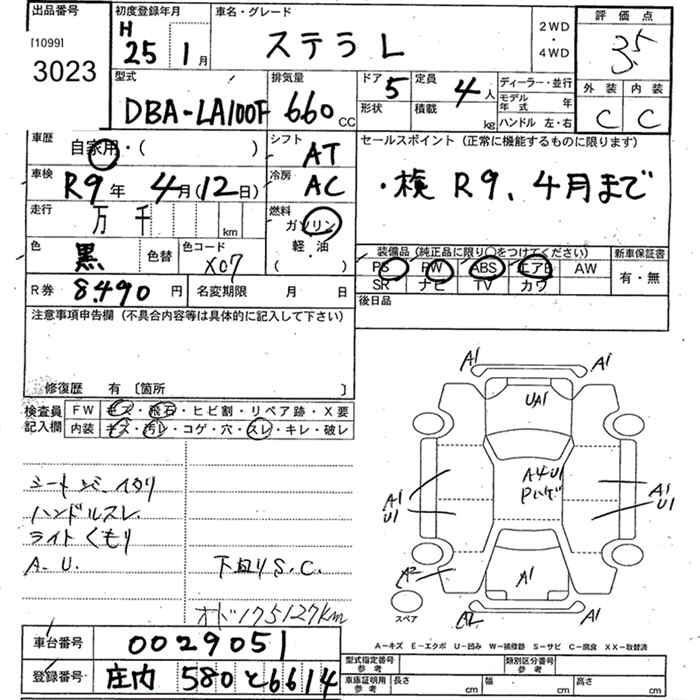 出品番号 初度登録年月 車名・グレード 2WD・4WD 評価点
[1099] 3023 H 25年 1月 ステラ L 3.5
型式 排気量 ドア 5 定員 4人 ディーラー・並行 外装 内装
DBA-LA100F 660cc 形状 積載 kg モデル年式 年 ハンドル 左・右 C C
車歴 自家用・( ) シフト AT セールスポイント (正常に機能するものに限ります)
車検 R9年 4月(12日) 冷房 AC ・検 R9.4月まで
走行 万 千 km 燃料 ガソリン
色 黒 色替 色コード X07 軽・油 ( ) 装備品 (純正品に限り○をつけてください) 新車保証書
PS PW ABS エアB AW 有・無
R券 8,490円 名変期限 月 日 SR ナビ TV カワ
注意事項申告欄 (不具合内容等は具体的に記入して下さい) 後日品
修復歴 有 〔箇所 〕
検査員記入欄 FW キズ・飛石・ヒビ割・リペア跡・X要
内装 キズ・汚レ・コゲ・穴・スレ・キレ・破レ
A1 A1
UA1
A4 U1
Pハゲ
A1 U1
A1 U1
シート
ハンドルスレ
ライトくもり
A.U. 下廻りS.C.
A2 A1
A2 A1
スペア
オド175127km
A－キズ E－エクボ U－凹み W－補修跡 S－サビ C－腐食 XX－取替済
車台番号 0029051
型式指定番号 参考 類別区分番号 参考
登録番号 庄内 580 と 6614
車庫証明用 参考 長さ cm 幅 cm 高さ cm